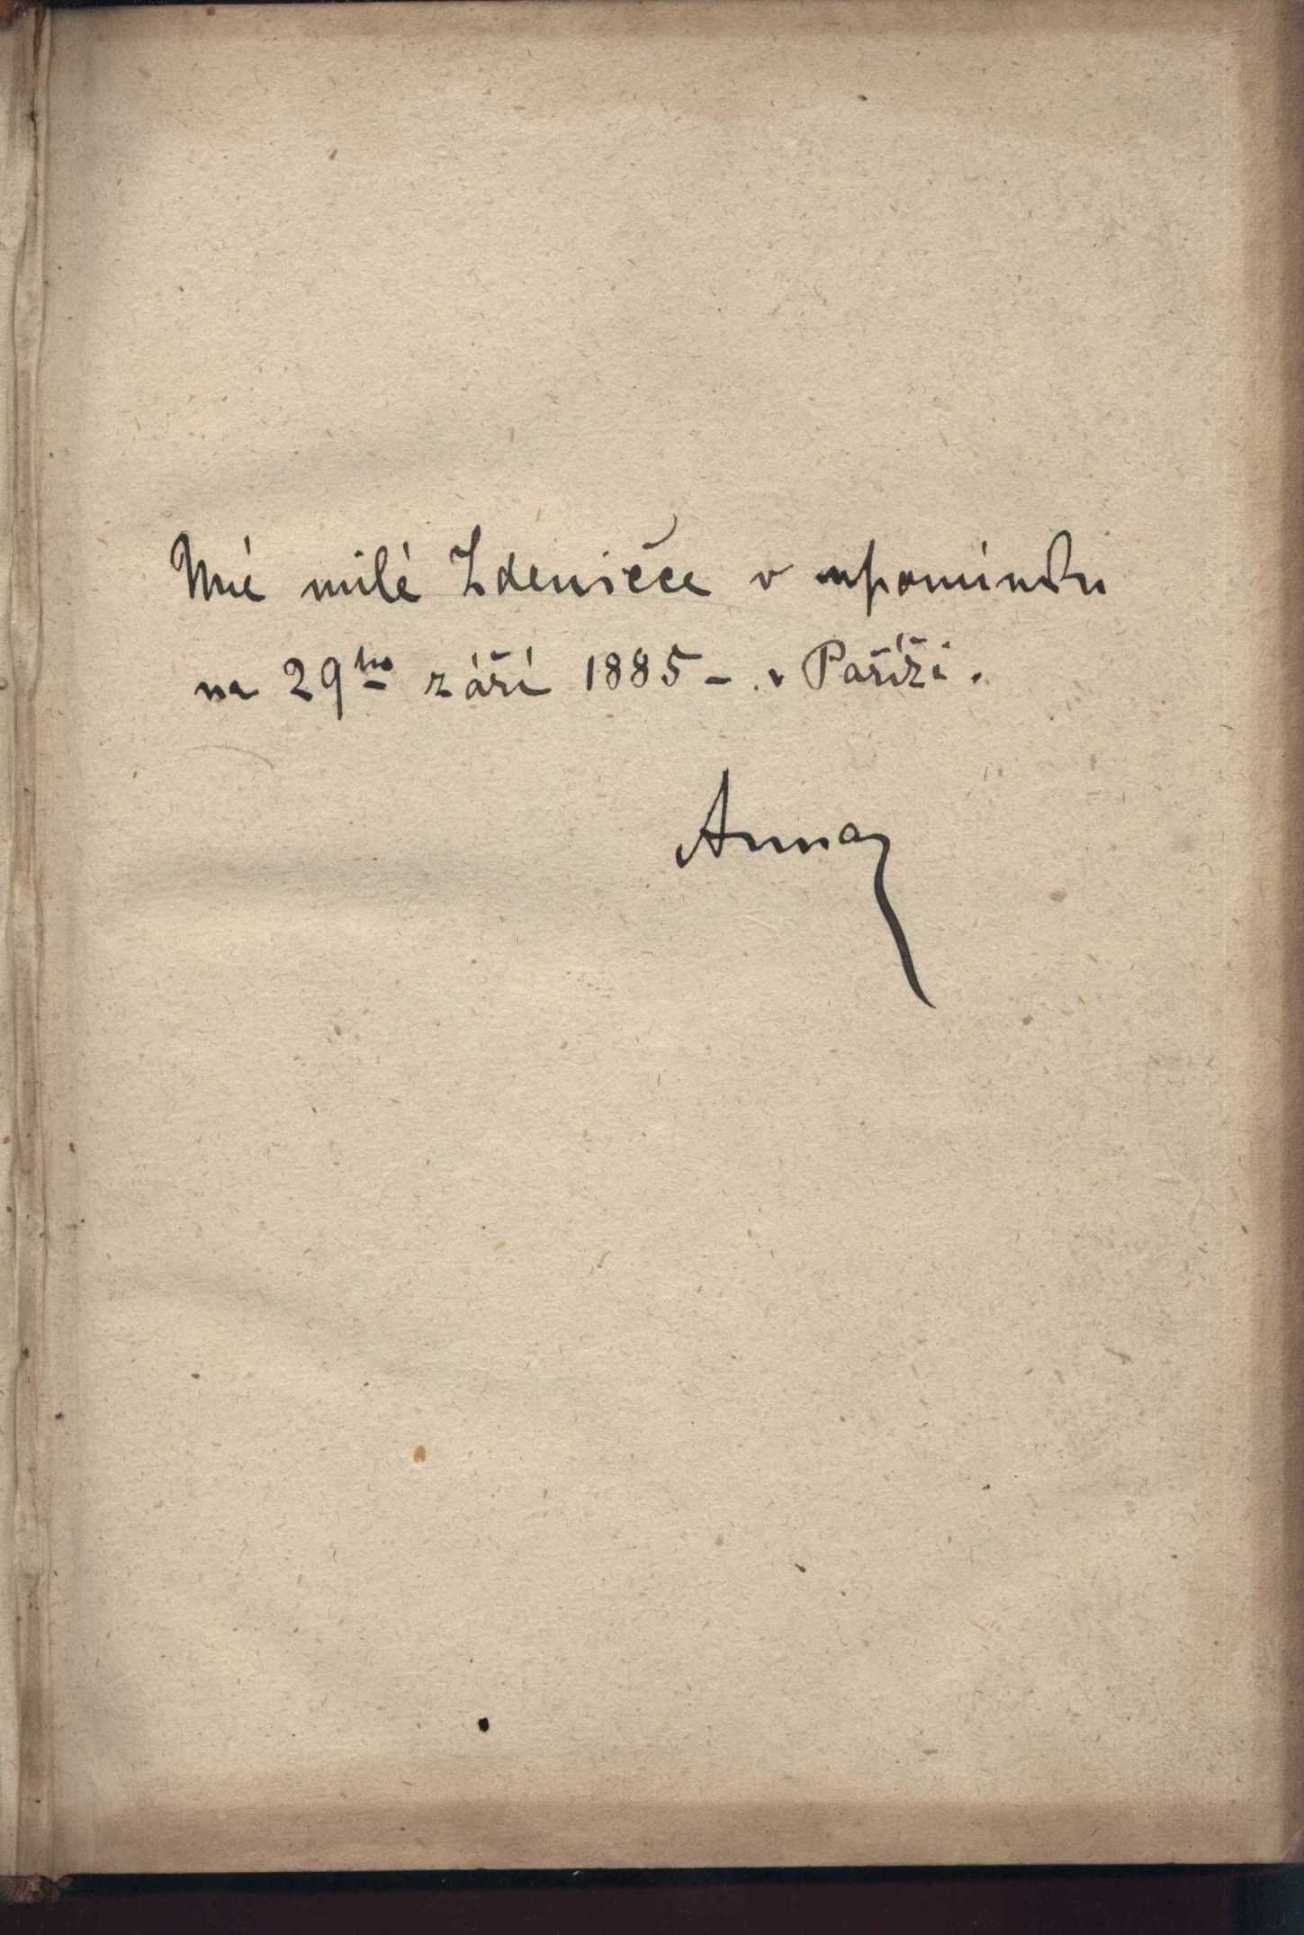 Mé milé Zdeničce v upomínku
na 29ho září 1885 – v Paříži.
Anna